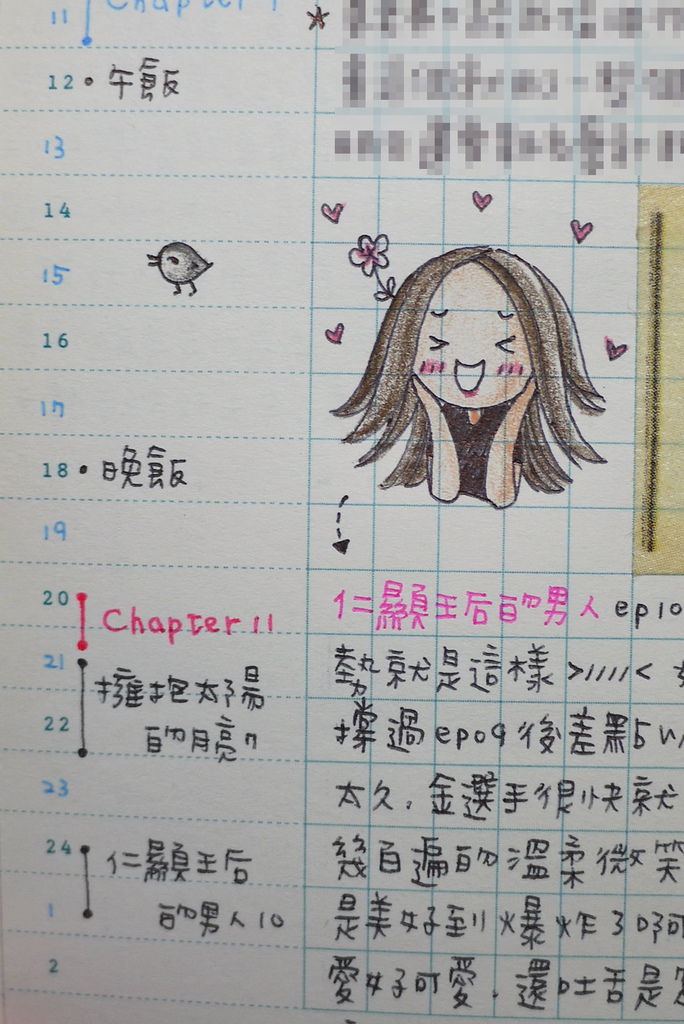 11
Chapter
12 • 午飯
13
14
15
16
17
18 • 晚飯
19
20
Chapter 11
21
擁抱太陽
22
的月亮 7
23
24
仁顯王后
1
的男人 10
2
仁顯王后的男人 ep10
勢就是這樣 >////<
撐過 ep09 後差點
太久, 金選手很快就
幾百遍的溫柔微笑
是美好到爆炸了啊
愛好可愛. 還吐舌是